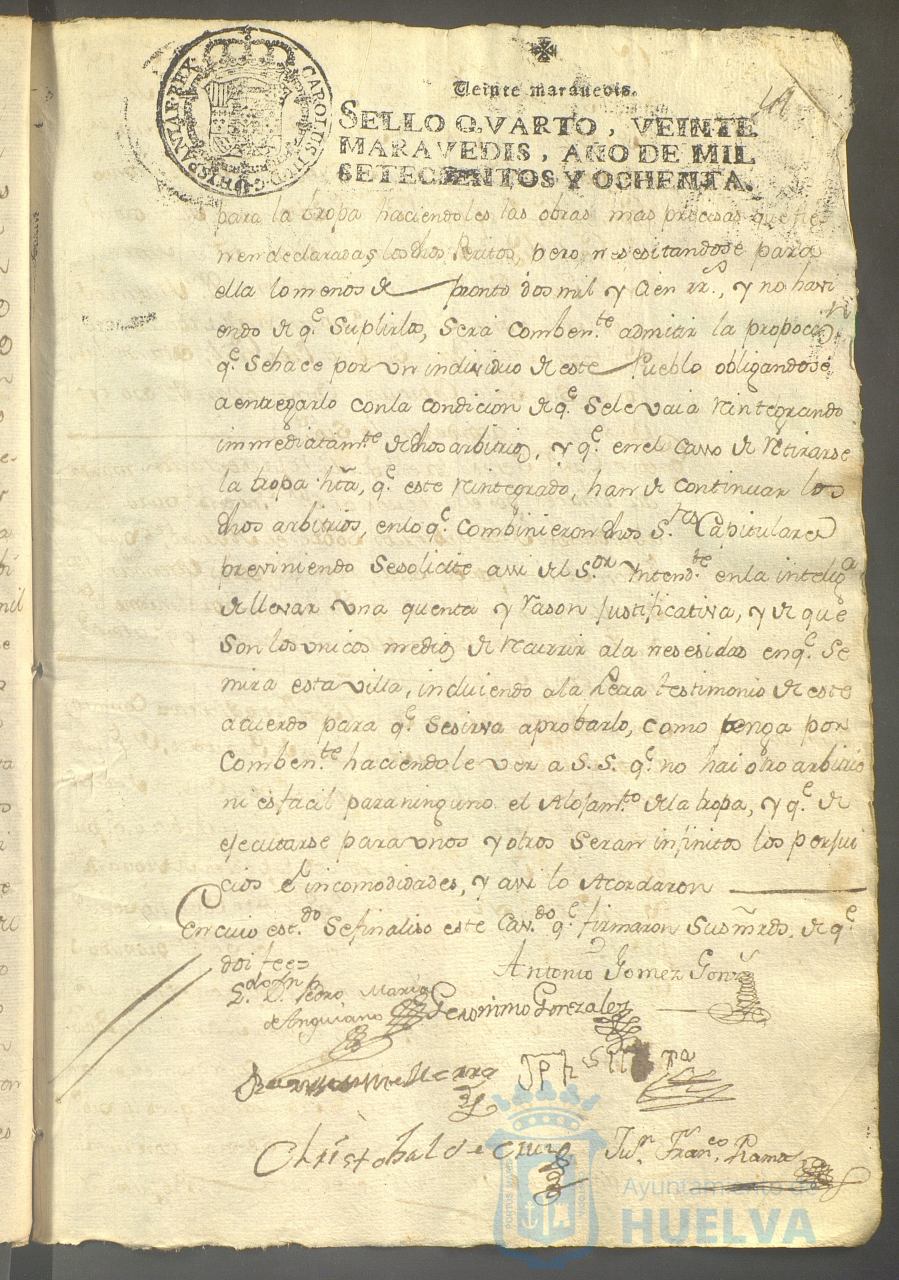 CAROLUS III D G HISPANIAR REX
Veinte maravedis.
SELLO QVARTO, VEINTE
MARAVEDIS, AÑO DE MIL
SETECIENTOS Y OCHENTA.
para la tropa haciendoles las obras mas precisas que tie
nen declaradas, los dhos Peritos, pero, nesesitandose para
ella lo menos de pronto dos mil y cien rr.s, y no havi
endo de q.e Suplirlos, será Comben.te admitir la propocic.n
q.e Sehace por un individuo de este Pueblo obligandose
a entregarlo conla condicion de q.e Sele vaia reintegrando
immediatam.te de dhos arbitrios, y q.e en el caso de retirarse
la tropa hta, q.e este reintegrado, han de continuar los
dhos arbitrios, enlo q.e Combinieron dhos S.res Capitulares
previniendo Sesolicite assi del S.or Yntend.te enla intelig.a
de llevar una quenta y rason Justificativa, y de que
Son los unicos medios de recurrir ala nesesidad enq.e Se
mira esta villa, incluiendo ala testimonio de este
acuerdo para q.e Sesirva aprobarlo, como tenga por
Comben.te haciendole ver a S.S. q.e no hai otro arbitrio
ni es facil para ninguno el Alojam.to dela tropa, y q.e de
ejecutarse para unos y otros Seran infinitos los perjui
cios é incomodidades, y assi lo Acordaron
En cuio est.do Sefinaliso este Cav.do q.e firmaron Susmrds. de q.e
doi fee=
Antonio Gomez Gonz
D. Pedro Maria
de Anguiano
Geronimo Gonzales
Jph
Christobal de Cruz
Ju.n Fran.co Ramos
PORTUS
Ayuntamiento de
HUELVA